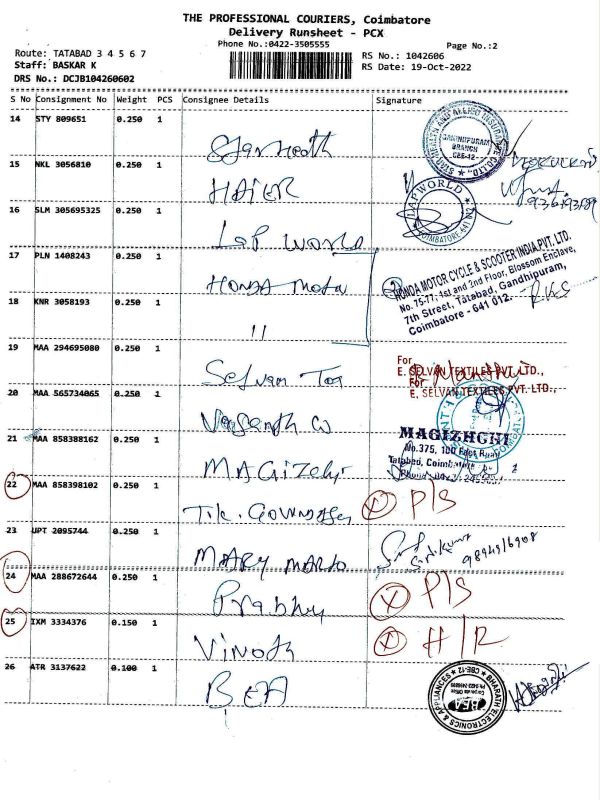 THE PROFESSIONAL COURIERS, Coimbatore
Delivery Runsheet - PCX
Phone No.:0422-3505555
Page No.:2
Route: TATABAD 3 4 5 6 7
RS No.: 1042606
Staff: BASKAR K
RS Date: 19-Oct-2022
DRS No.: DCJB104260602
S No Consignment No Weight PCS Consignee Details Signature
14 STY 809651 0.250 1 Star Health
15 NKL 3056810 0.250 1 HAIER
16 SLM 305695325 0.250 1 Lap World
17 PLN 1408243 0.250 1 HONDA Motor
18 KNR 3058193 0.250 1 11
19 MAA 294695080 0.250 1 Selvam Tex
20 MAA 565734065 0.250 1 Vasanth Co
21 MAA 858388162 0.250 1 MAGizchi
22 MAA 858398102 0.250 1 T.K. GOWNDASY X P/S
23 JPT 2095744 0.250 1 MARY MARTO
24 MAA 288672644 0.250 1 Prabhu X P/S
25 IXM 3334376 0.150 1 Vinoth X H/R
26 ATR 3137622 0.100 1 BEA
GANDHIPURAM
BRANCH
CBE-12
LAP WORLD
COIMBATORE-641 012
HONDA MOTOR CYCLE & SCOOTER INDIA PVT. LTD.
No. 75-77, 1st and 2nd Floor, Blossom Enclave,
7th Street, Tatabad, Gandhipuram,
Coimbatore - 641 012.
For
E. SELVAN TEXTILES PVT. LTD.,
For
E. SELVAN TEXTILES PVT. LTD.,
MAGIZHCHI
No.375, 100 Feet Road
Tatabad, Coimbatore
9894916908
BHARATH ELECTRONICS & APPLIANCES
CBE-12
Corporate Office
BEA